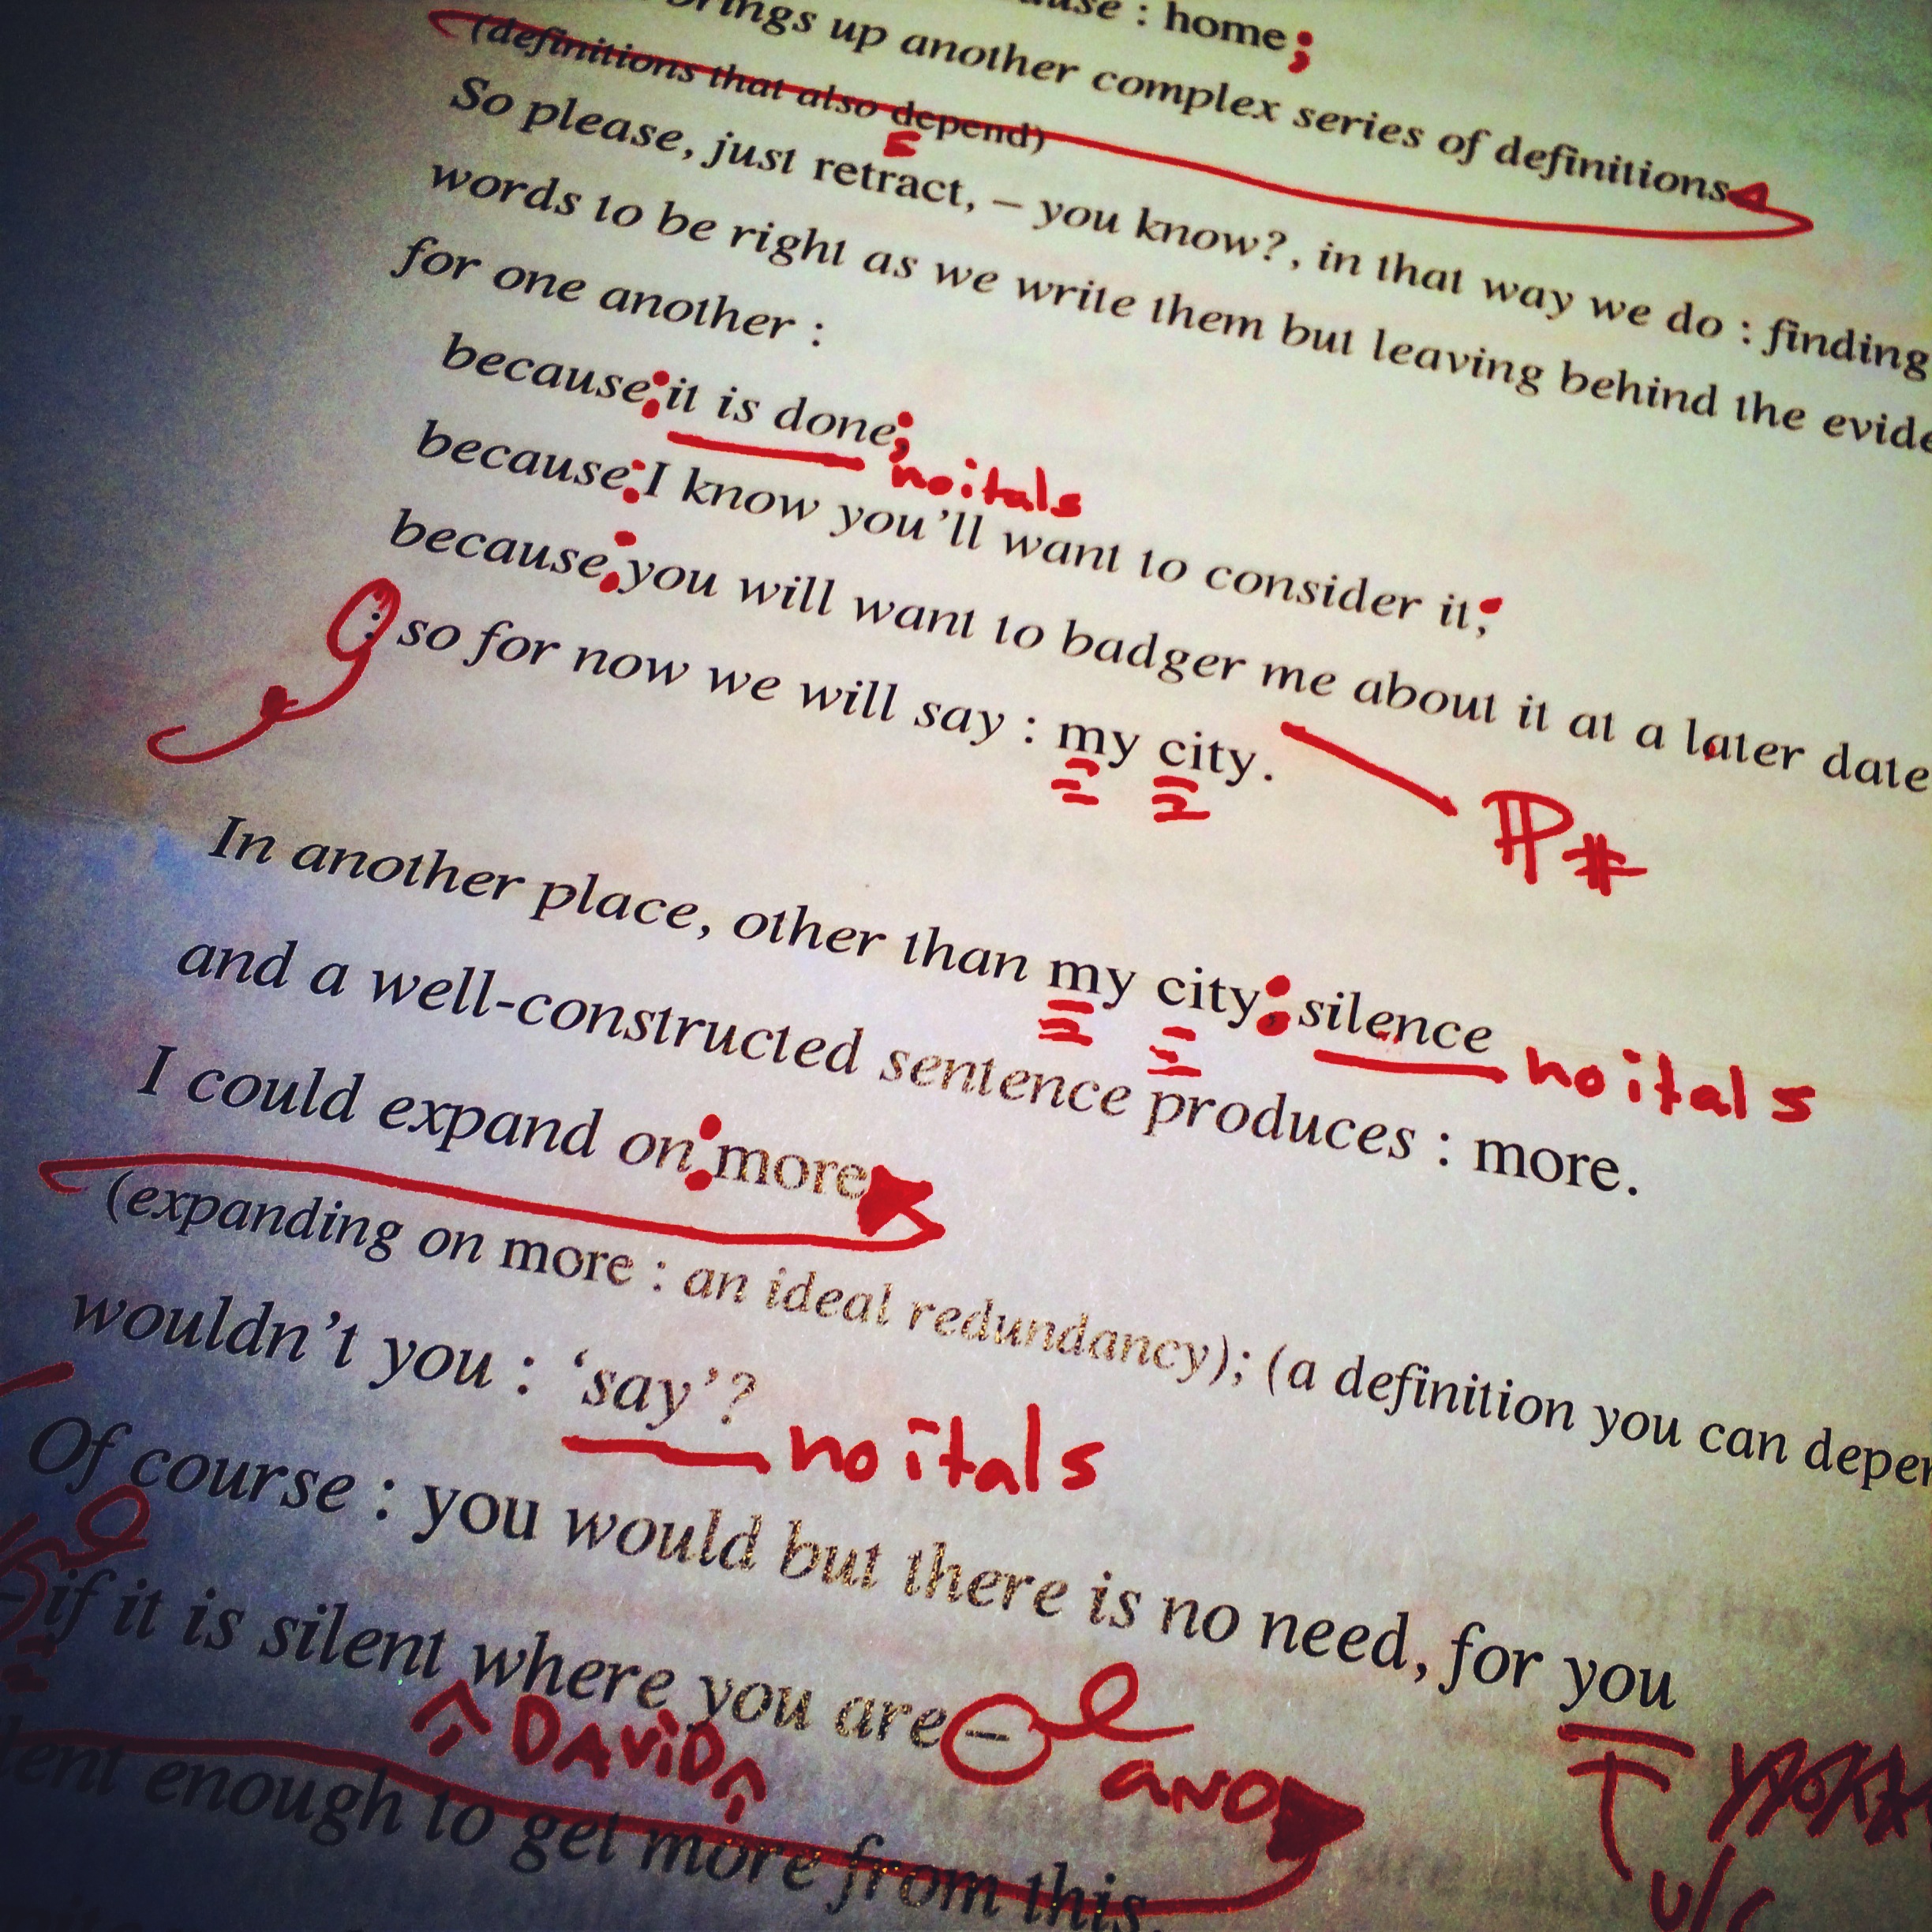 : home;
up another complex series of definitions
(definitions that also depend)
So please, just retract, – you know?, in that way we do : finding
words to be right as we write them but leaving behind the
for one another :
because: it is done;
no itals
because: I know you'll want to consider it;
because: you will want to badger me about it at a later date
: so for now we will say : my city.
#
In another place, other than my city: silence
no itals
and a well-constructed sentence produces : more.
I could expand on: more
(expanding on more : an ideal redundancy); (a definition you can
wouldn't you : 'say'?
no itals
Of course : you would but there is no need, for you
if it is silent where you are –
"DAVID"
AND
enough to get more from this.